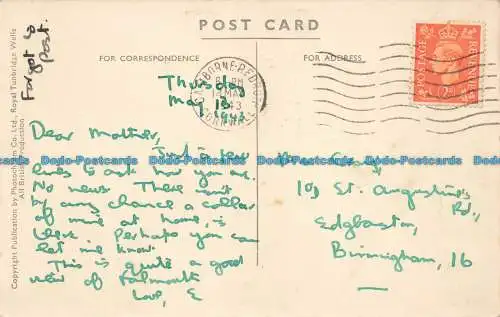 POST CARD
FOR CORRESPONDENCE
FOR ADDRESS
Forgot to
Post.
Copyright Publication by Photochrom Co. Ltd., Royal Tunbridge Wells
All British Production.
Thursday
May 13
1943
Dear Mother,
Just a few
lines to ask how you are.
No news. There isn't
by any chance a collar
of mine at home, is
there Perhaps you can
let me know.
This is quite a good
view of Falmouth
Love, E
109 St. Augustine's
Rd.,
Edgbaston,
Birmingham, 16
POSTAGE
REVENUE
14 MAY
43
CORNWALL
Dodo-Postcards Dodo-Postcards Dodo-Postcards Dodo-Postcards